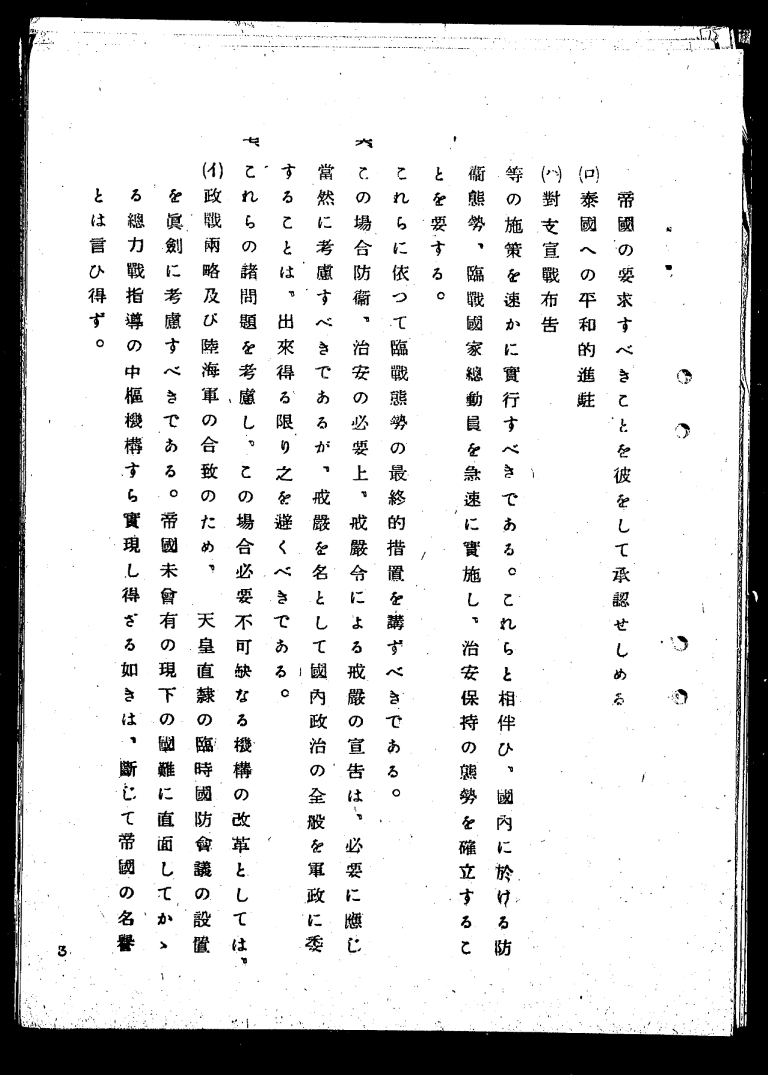 帝國の要求すべきことを彼をして承認せしめる
(ロ)泰國への平和的進駐
(ハ)對支宣戰布告
等の施策を速かに實行すべきである。これらと相伴ひ、國内に於ける防
衞態勢、臨戰國家總動員を急速に實施し、治安保持の態勢を確立するこ
とを要する。
これらに依つて臨戰態勢の最終的措置を講ずべきである。
六 この場合防衞、治安の必要上、戒嚴令による戒嚴の宣告は、必要に應じ
當然に考慮すべきであるが、戒嚴を名として國内政治の全般を軍政に委
することは、出來得る限り之を避くべきである。
七 これらの諸問題を考慮し、この場合必要不可缺なる機構の改革としては、
(イ)政戰兩略及び陸海軍の合致のため、 天皇直隷の臨時國防會議の設置
を眞劍に考慮すべきである。帝國未曾有の現下の國難に直面してかゝ
る總力戰指導の中樞機構すら實現し得ざる如きは、斷じて帝國の名譽
とは言ひ得ず。
3